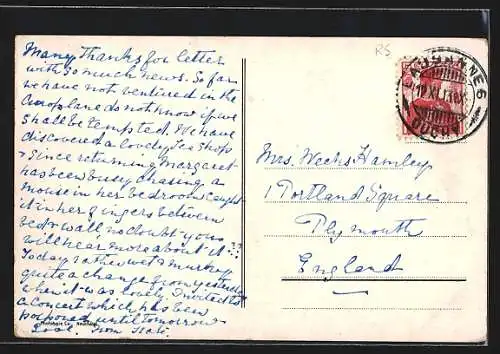 Many Thanks for letter
with so much news. So far
we have not ventured in the
aeroplane do not know if we
shall be tempted. We have
discovered a lovely Tea Shop
Since returning Margaret
has been busy chasing a
mouse in her bedroom caught
it in her fingers between
bed & wall no doubt you
will hear more about it??
Today rather wet & murky
quite a change from yesterday
when it was lovely. Invited to
a concert which has been
postponed until tomorrow
Love. from Kate.
RS
LAUSANNE 6
12.XI.
OUCHY
Mrs. Weekes Hamley
1 Portland Square
Plymouth
England